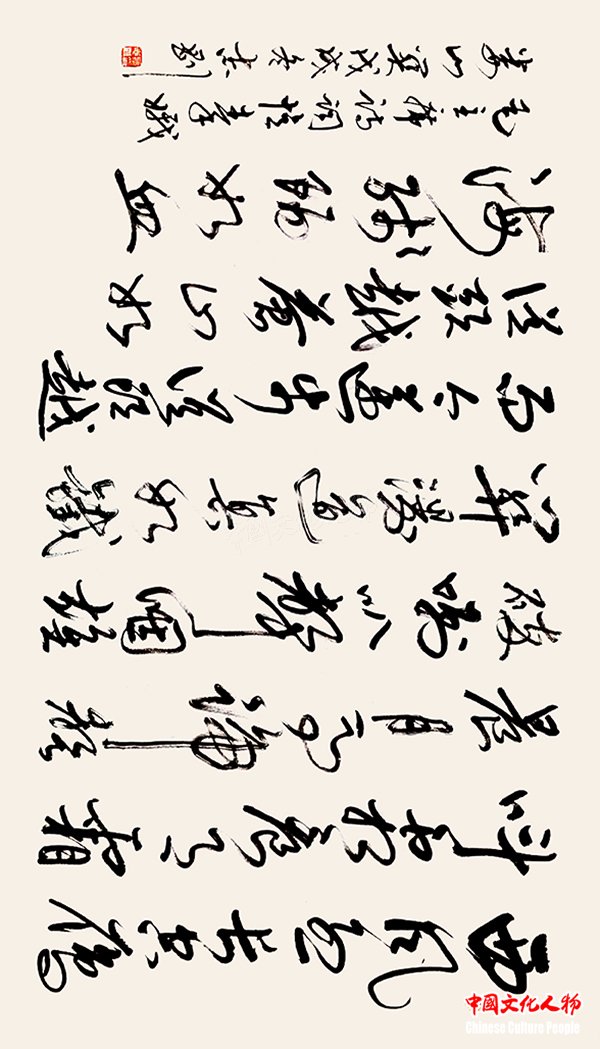 西风烈长空雁
叫霜晨月霜
晨月马蹄声
碎喇叭声咽雄
关漫道真如鐵
而今迈步从头越
从头越苍山如
海残阳如血
毛主席诗词忆秦娥
娄山关戊戌冬
中國文化人物
Chinese Culture People